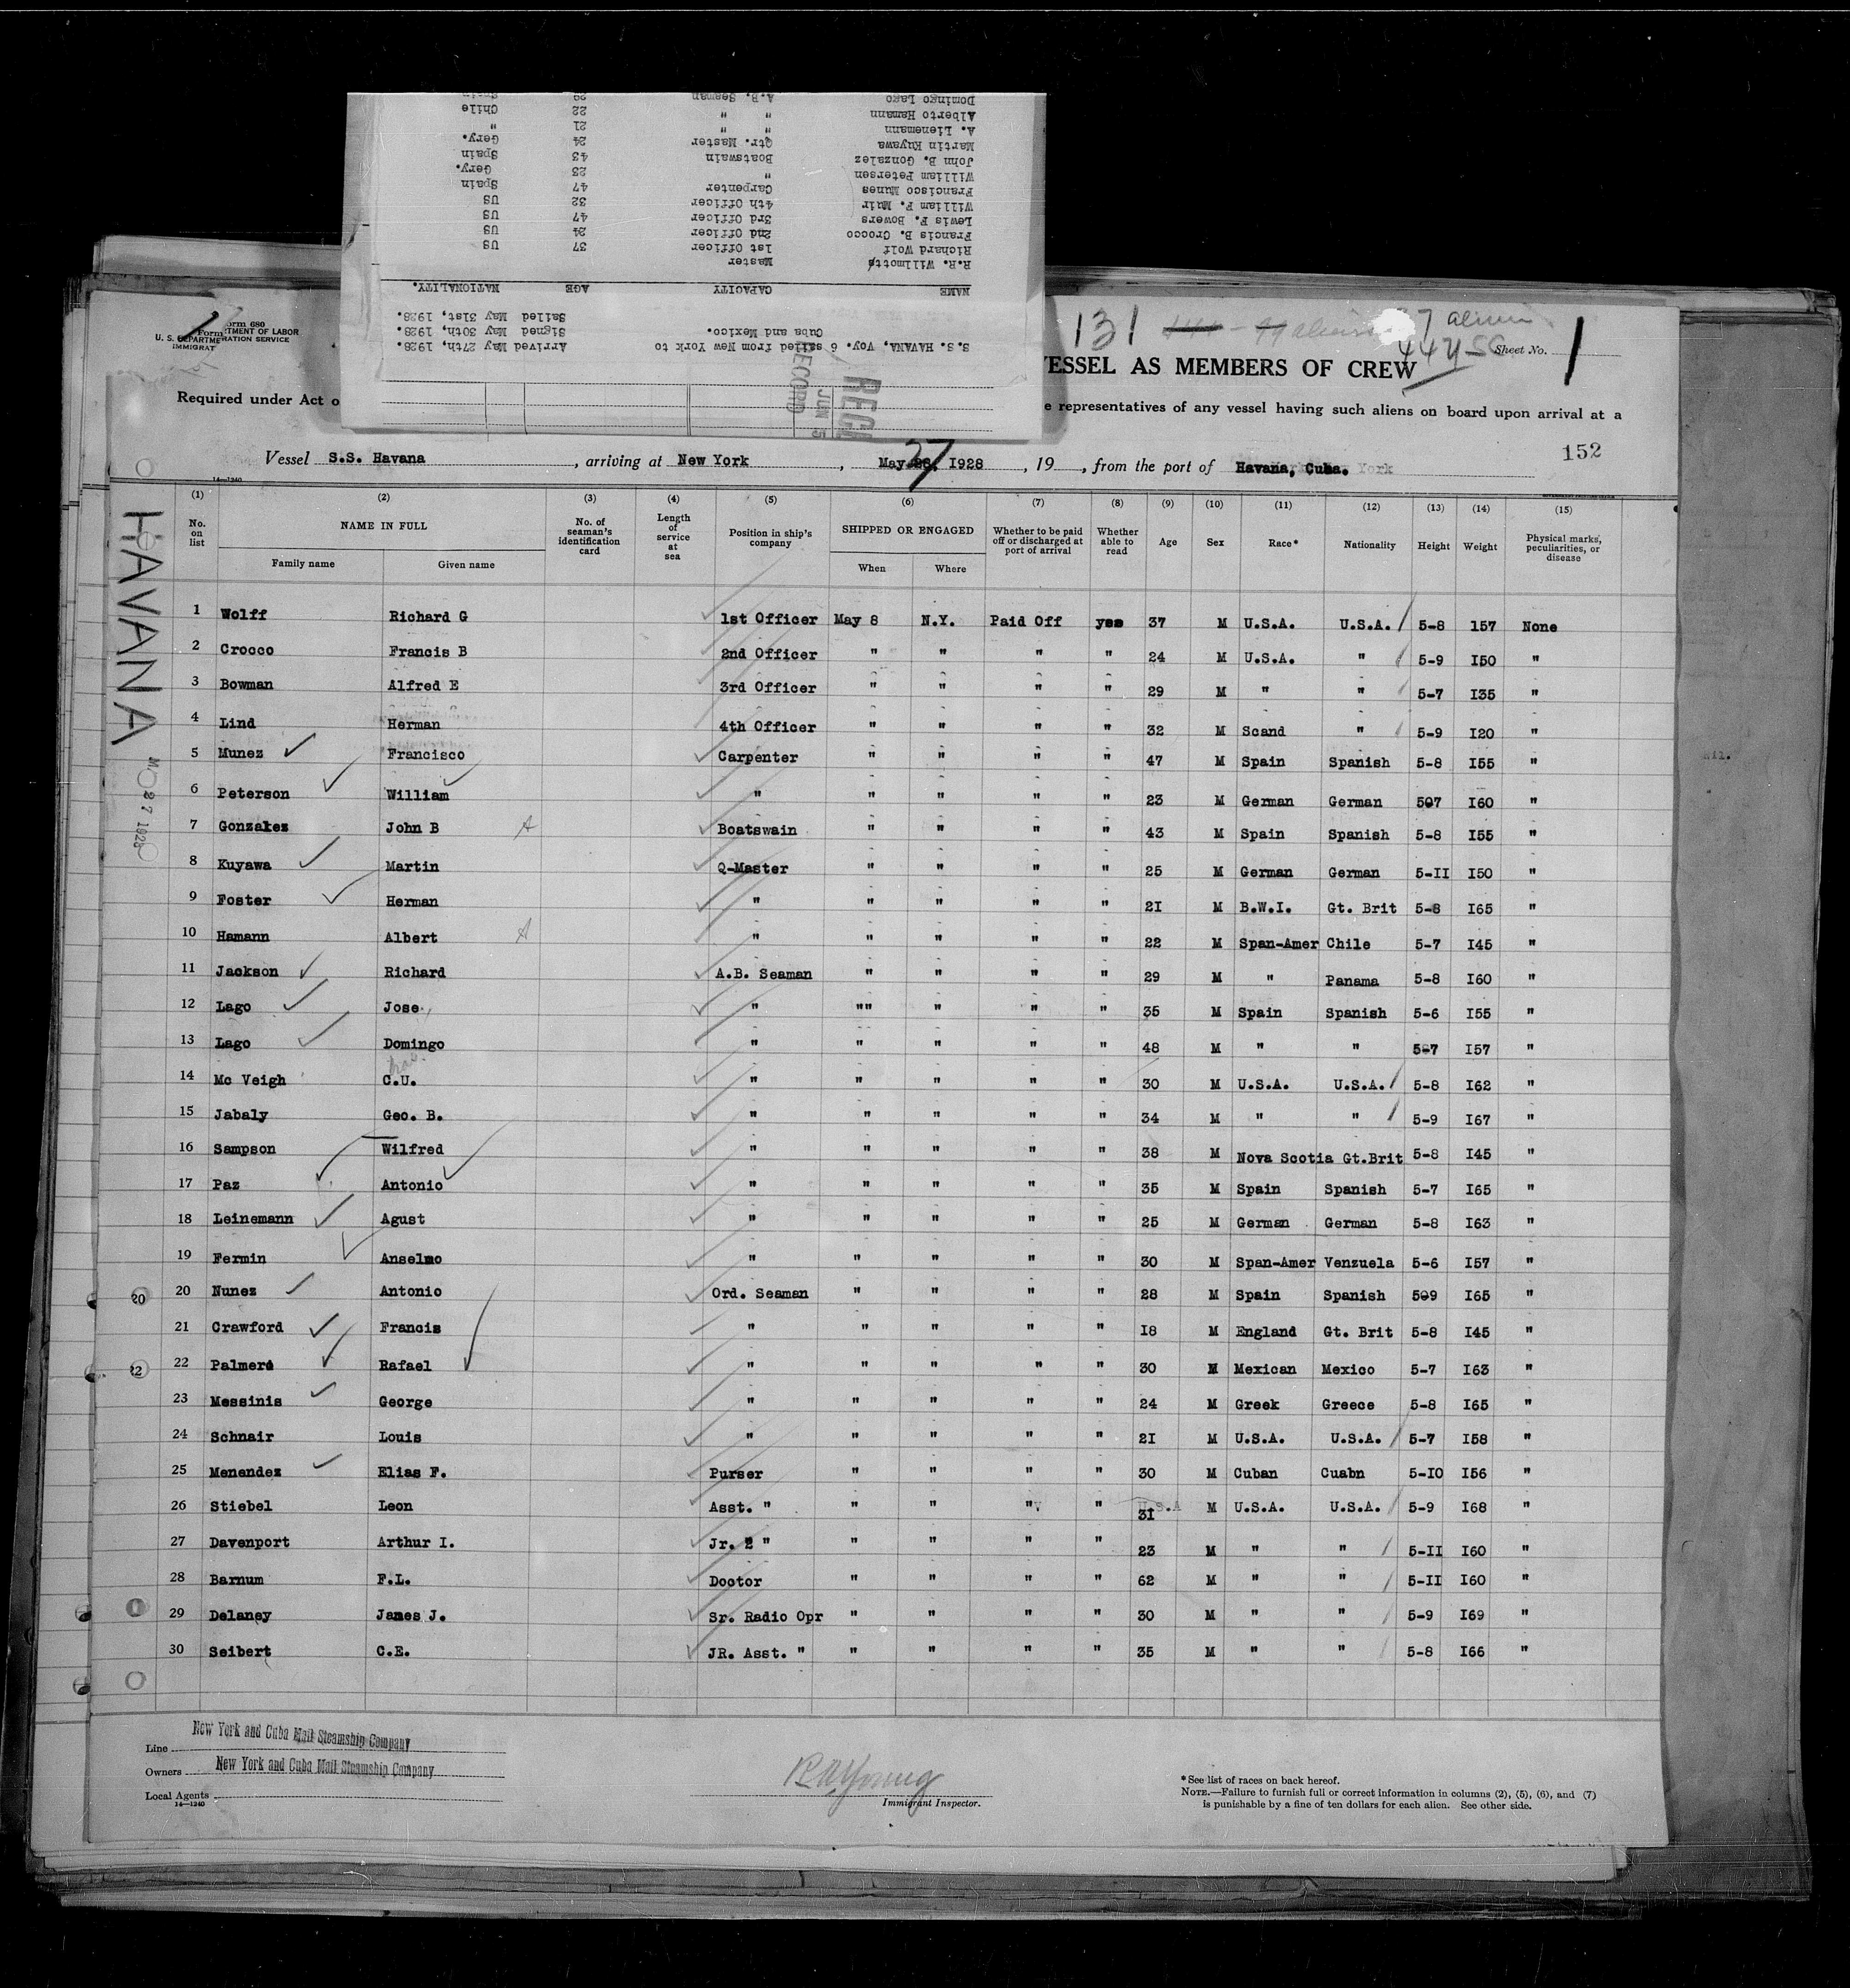 Domingo Lago A.B. Seaman 29 Spain
Alberto Hamann " " 22 Chile
A. Lienemann " " 21 "
Martin Kuyawa Qtr. Master 24 Gery.
John B. Gonzalez Boatswain 43 Spain
William Petersen " 23 Gery.
Francisco Munes Carpenter 47 Spain
William F. Muir 4th Officer 32 US
Lewis F. Bowers 3rd Officer 47 US
Francis B. Crocco 2nd Officer 24 US
Richard Wolf 1st Officer 37 US
R.R. Willmott Master
NAME CAPACITY AGE NATIONALITY.
Sailed May 31st, 1928.
Cuba and Mexico. Signed May 30th, 1928.
S.S. HAVANA, Voy. 6 sailed from New York to Arrived May 27th, 1928.
RECORD JUN 5
Form 680
U. S. DEPARTMENT OF LABOR
IMMIGRATION SERVICE
131
7 alien
Sheet No. 1
VESSEL AS MEMBERS OF CREW
Required under Act o
e representatives of any vessel having such aliens on board upon arrival at a
152
Vessel S.S. Havana, arriving at New York, May 27, 1928, 19 , from the port of Havana, Cuba.
14—1240
HAVANA
(1) (2) (3) (4) (5) (6) (7) (8) (9) (10) (11) (12) (13) (14) (15)
No. on list NAME IN FULL No. of seaman's identification card Length of service at sea Position in ship's company SHIPPED OR ENGAGED Whether to be paid off or discharged at port of arrival Whether able to read Age Sex Race* Nationality Height Weight Physical marks, peculiarities, or disease
Family name Given name When Where
1 Wolff Richard G 1st Officer May 8 N.Y. Paid Off yes 37 M U.S.A. U.S.A. 5-8 157 None
2 Crocco Francis B 2nd Officer " " " " 24 M U.S.A. " 5-9 I50 "
3 Bowman Alfred E 3rd Officer " " " " 29 M " " 5-7 I35 "
4 Lind Herman 4th Officer " " " " 32 M Scand " 5-9 I20 "
5 Munez Francisco Carpenter " " " " 47 M Spain Spanish 5-8 I55 "
6 Peterson William " " " " " 23 M German German 507 I60 "
7 Gonzales John B A Boatswain " " " " 43 M Spain Spanish 5-8 I55 "
8 Kuyawa Martin Q-Master " " " " 25 M German German 5-II I50 "
9 Foster Herman " " " " " 2I M B.W.I. Gt. Brit 5-8 I65 "
10 Hamann Albert A " " " " " 22 M Span-Amer Chile 5-7 I45 "
11 Jackson Richard A.B. Seaman " " " " 29 M " Panama 5-8 I60 "
12 Lago Jose " "" " " " 35 M Spain Spanish 5-6 I55 "
13 Lago Domingo " " " " " 48 M " " 5-7 I57 "
14 Mc Veigh C.U. " " " " " 30 M U.S.A. U.S.A. 5-8 I62 "
15 Jabaly Geo. B. " " " " " 34 M " " 5-9 I67 "
16 Sampson Wilfred " " " " " 38 M Nova Scotia Gt.Brit 5-8 I45 "
17 Paz Antonio " " " " " 35 M Spain Spanish 5-7 I65 "
18 Leinemann Agust " " " " " 25 M German German 5-8 I63 "
19 Fermin Anselmo " " " " " 30 M Span-Amer Venzuela 5-6 I57 "
20 Nunez Antonio Ord. Seaman " " " " 28 M Spain Spanish 509 I65 "
21 Crawford Francis " " " " " I8 M England Gt. Brit 5-8 I45 "
22 Palmera Rafael " " " " " 30 M Mexican Mexico 5-7 I63 "
23 Messinis George " " " " " 24 M Greek Greece 5-8 I65 "
24 Schnair Louis " " " " " 2I M U.S.A. U.S.A. 5-7 I58 "
25 Menendez Elias F. Purser " " " " 30 M Cuban Cuabn 5-IO I56 "
26 Stiebel Leon Asst. " " " " " 31 M U.S.A. U.S.A. 5-9 I68 "
27 Davenport Arthur I. Jr. 2 " " " " " 23 M " " 5-II I60 "
28 Barnum F.L. Doctor " " " " 62 M " " 5-II I60 "
29 Delaney James J. Sr. Radio Opr " " " " 30 M " " 5-9 I69 "
30 Seibert C.E. JR. Asst. " " " " " 35 M " " 5-8 I66 "
Line New York and Cuba Mail Steamship Company
Owners New York and Cuba Mail Steamship Company
Local Agents
14—1240
RAYoung
Immigrant Inspector.
*See list of races on back hereof.
NOTE.—Failure to furnish full or correct information in columns (2), (5), (6), and (7)
is punishable by a fine of ten dollars for each alien. See other side.